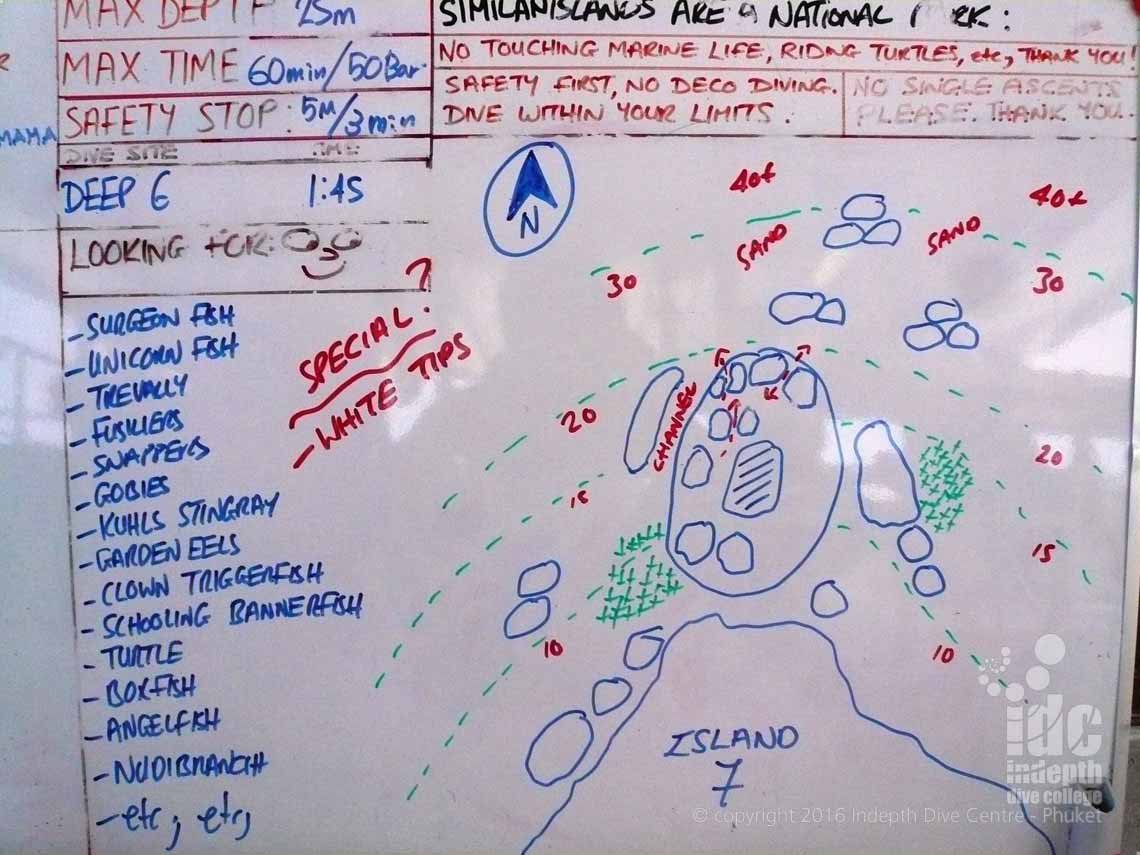 MAX DEPTH 25m
MAX TIME 60min/50Bar
SAFETY STOP: 5M/3min
MAMA
DIVE SITE TIME
DEEP 6 1:45
LOOKING FOR:
- SURGEON FISH
- UNICORN FISH
- TREVALLY
- FUSILIERS
- SNAPPERS
- GOBIES
- KUHLS STINGRAY
- GARDEN EELS
- CLOWN TRIGGERFISH
- SCHOOLING BANNERFISH
- TURTLE
- BOXFISH
- ANGELFISH
- NUDIBRANCH
- etc, etc,
SPECIAL?
- WHITE TIPS
SIMILAN ISLANDS ARE A NATIONAL P RK:
NO TOUCHING MARINE LIFE, RIDING TURTLES, etc, THANK YOU!
SAFETY FIRST, NO DECO DIVING.
DIVE WITHIN YOUR LIMITS.
NO SINGLE ASCENTS
PLEASE. THANK YOU.
N
40+
40+
SAND
SAND
30
30
20
CHANNEL
20
15
15
10
10
ISLAND
7
idc
indepth
dive college
© copyright 2016 Indepth Dive Centre - Phuket